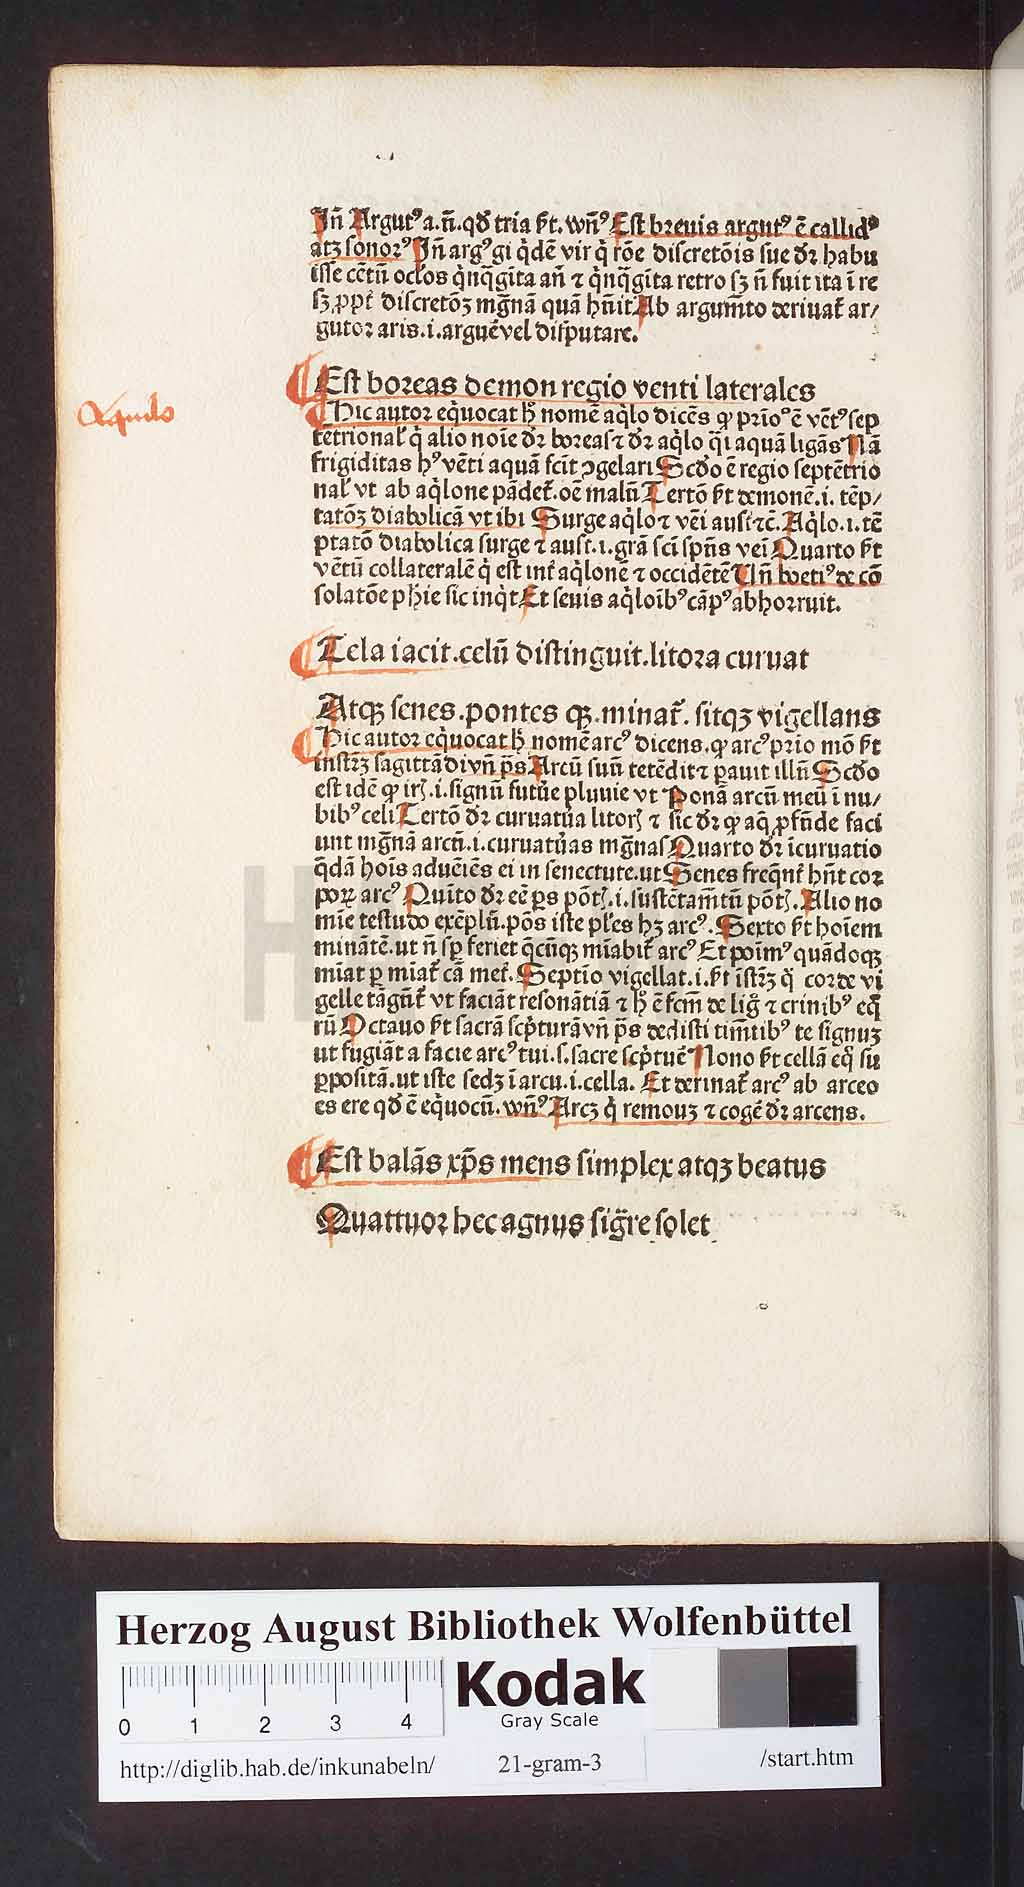 Jn̄ Argutꝰ a.n̄.qď tria ſt̄. wn̄ꝰ Eſt breuis argutꝰ ē callidꝰ
atqꝫ ſonorꝰ Jn̄ argꝰ gi q̇dē vir q̇ rōe diſcretōis ſue dr̄ habu
iſſe cētū oc̄los q̇nq̄gīta an̄ ⁊ q̇nq̄gīta retro ſꝫ n̄ fuit ita ī re
ſꝫ ꝓpt̄ diſcretōꝫ mḡnā quā hn̄it Ab argum̄to deriuat̄ ar/
gutor aris.i.arguē vel diſputare.
Eſt boreas demon regio venti laterales
Aquilo
Hic autor eq̇uocat hͦ nomē aq̇lo dicēs ꝙ prīoꝰ ē vētꝰ ſep
tētrional̄ q̇ alio noīe dr̄ boreas ⁊ dr̄ aq̇lo q̄i aquā ligās Nā
frigiditas hꝰ vēti aquā fcīt ꝯgelari Scďo ē regio ſeptētrio
nal̄ vt ab aq̇lone pādet̄.oē malū Tertō ſt̄ demonē.i. tēp/
tatōꝫ diabolicā vt ibi Surge aq̇lo ⁊ vēi auſt̄ ⁊c̄. Aq̇lo.i.tē
ptatō diabolica ſurge ⁊ auſt̄.i.grā ſcī ſpūs veī Quarto ſt̄
vētū collateralē q̇ eſt int̄ aq̇lonē ⁊ occidētē Un̄ boetiꝰ de cō
ſolatōe phīe ſic inq̇t Et ſeuis aq̇loībꝰ cāpꝰ abhorruit.
Tela iacit.celū diſtinguit.litora curuat
Atqꝫ ſenes.pontes qꝫ.minat̄. ſitqꝫ vigellans
Hic autor eq̇uocat hͦ nomē arcꝰ dicens.ꝙ arcꝰ prīo mō ſt̄
inſtr̄ꝫ ſagittādi vn̄ p̄s Arcū ſuū tetēdit ⁊ ꝑauit illū Scďo
eſt idē ꝙ irꝭ.i.ſignū futūe pluuie vt Ponā arcū meū ī nu/
bibꝰ celi Tertō dr̄ curuatūa litorꝭ ⁊ ſic dr̄ ꝙ aq̄ ꝓfūde faci
unt mḡnā arcū.i.curuatūas mḡnas Quarto dr̄ īcuruatio
q̄dā hoīs aduēiēs ei in ſenectute.ut Senes freq̄nt̄ hn̄t cor
poꝝ arcꝰ Quīto dr̄ eē ꝑs pōtꝭ.i.ſuſtētam̄tū pōtꝭ. Alio no
mīe teſtudo exēplū.pōs iſte pl̄es hꝫ arcꝰ. Sexto ſt̄ hoīem
minātē.ut n̄ ſꝑ feriet q̄cūqꝫ mīabit̄ arcꝰ Et poīmꝰ quādoqꝫ
mīat ꝑ mīat̄ cā met̄. Septīo vigellat.i.ſt̄ īſtr̄ꝫ q̇ corde vi
gelle tāgūt̄ vt faciāt reſonātiā ⁊ hͦ ē fcīm de lig̅ ⁊ crinibꝰ eq̄
rū Octauo ſt̄ ſacrā ſcp̄turā vn̄ p̄s dediſti tim̄tibꝰ te ſignuꝫ
ut fugiāt a facie arcꝰ tui.ſ.ſacre ſcp̄tuē Nono ſt̄ cellā eq̇ ſu
ꝑpoſitā.ut iſte ſedꝫ ī arcu.i.cella. Et deriuat̄ arcꝰ ab arceo
es ere qď ē eq̇uocū. wn̄ꝰ Arcꝫ q̇ remouꝫ ⁊ cogē dr̄ arcens.
Eſt balās xp̄s mens ſimplex atqꝫ beatus
Quattuor hec agnus ſig̅re ſolet
Herzog August Bibliothek Wolfenbüttel
Kodak
Gray Scale
0 1 2 3 4
http://diglib.hab.de/inkunabeln/ 21-gram-3 /start.htm